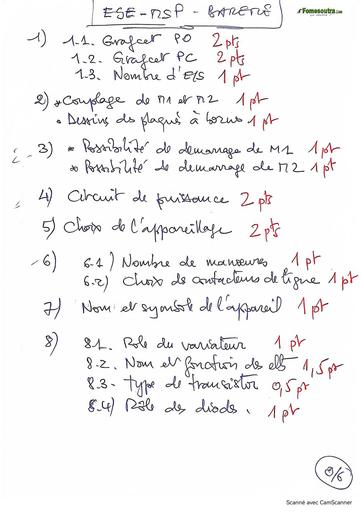 ESE-MSP-BAREME
Fomesoutra.com
1) 1.1. Grafcet PO 2 pts
1.2. Grafcet PC 2 pts
1.3. Nombre d'E/S 1 pt
2) * Couplage de M1 et M2 1 pt
• Dessins des plaques à bornes 1 pt
3) * Possibilité de demarrage de M1 1 pt
* Possibilité de demarrage de M2 1 pt
4) Circuit de puissance 2 pts
5) Choix de l'appareillage 2 pts
6) 6.1) Nombre de manœuvres 1 pt
6.2) Choix de contacteurs de ligne 1 pt
7) Nom et symbole de l'appareil 1 pt
8) 8.1. Role du variateur 1 pt
8.2. Nom et fonction des elts 1,5 pt
8.3- type de transistor 0,5 pt
8.4) Role des diodes. 1 pt
Scanné avec CamScanner